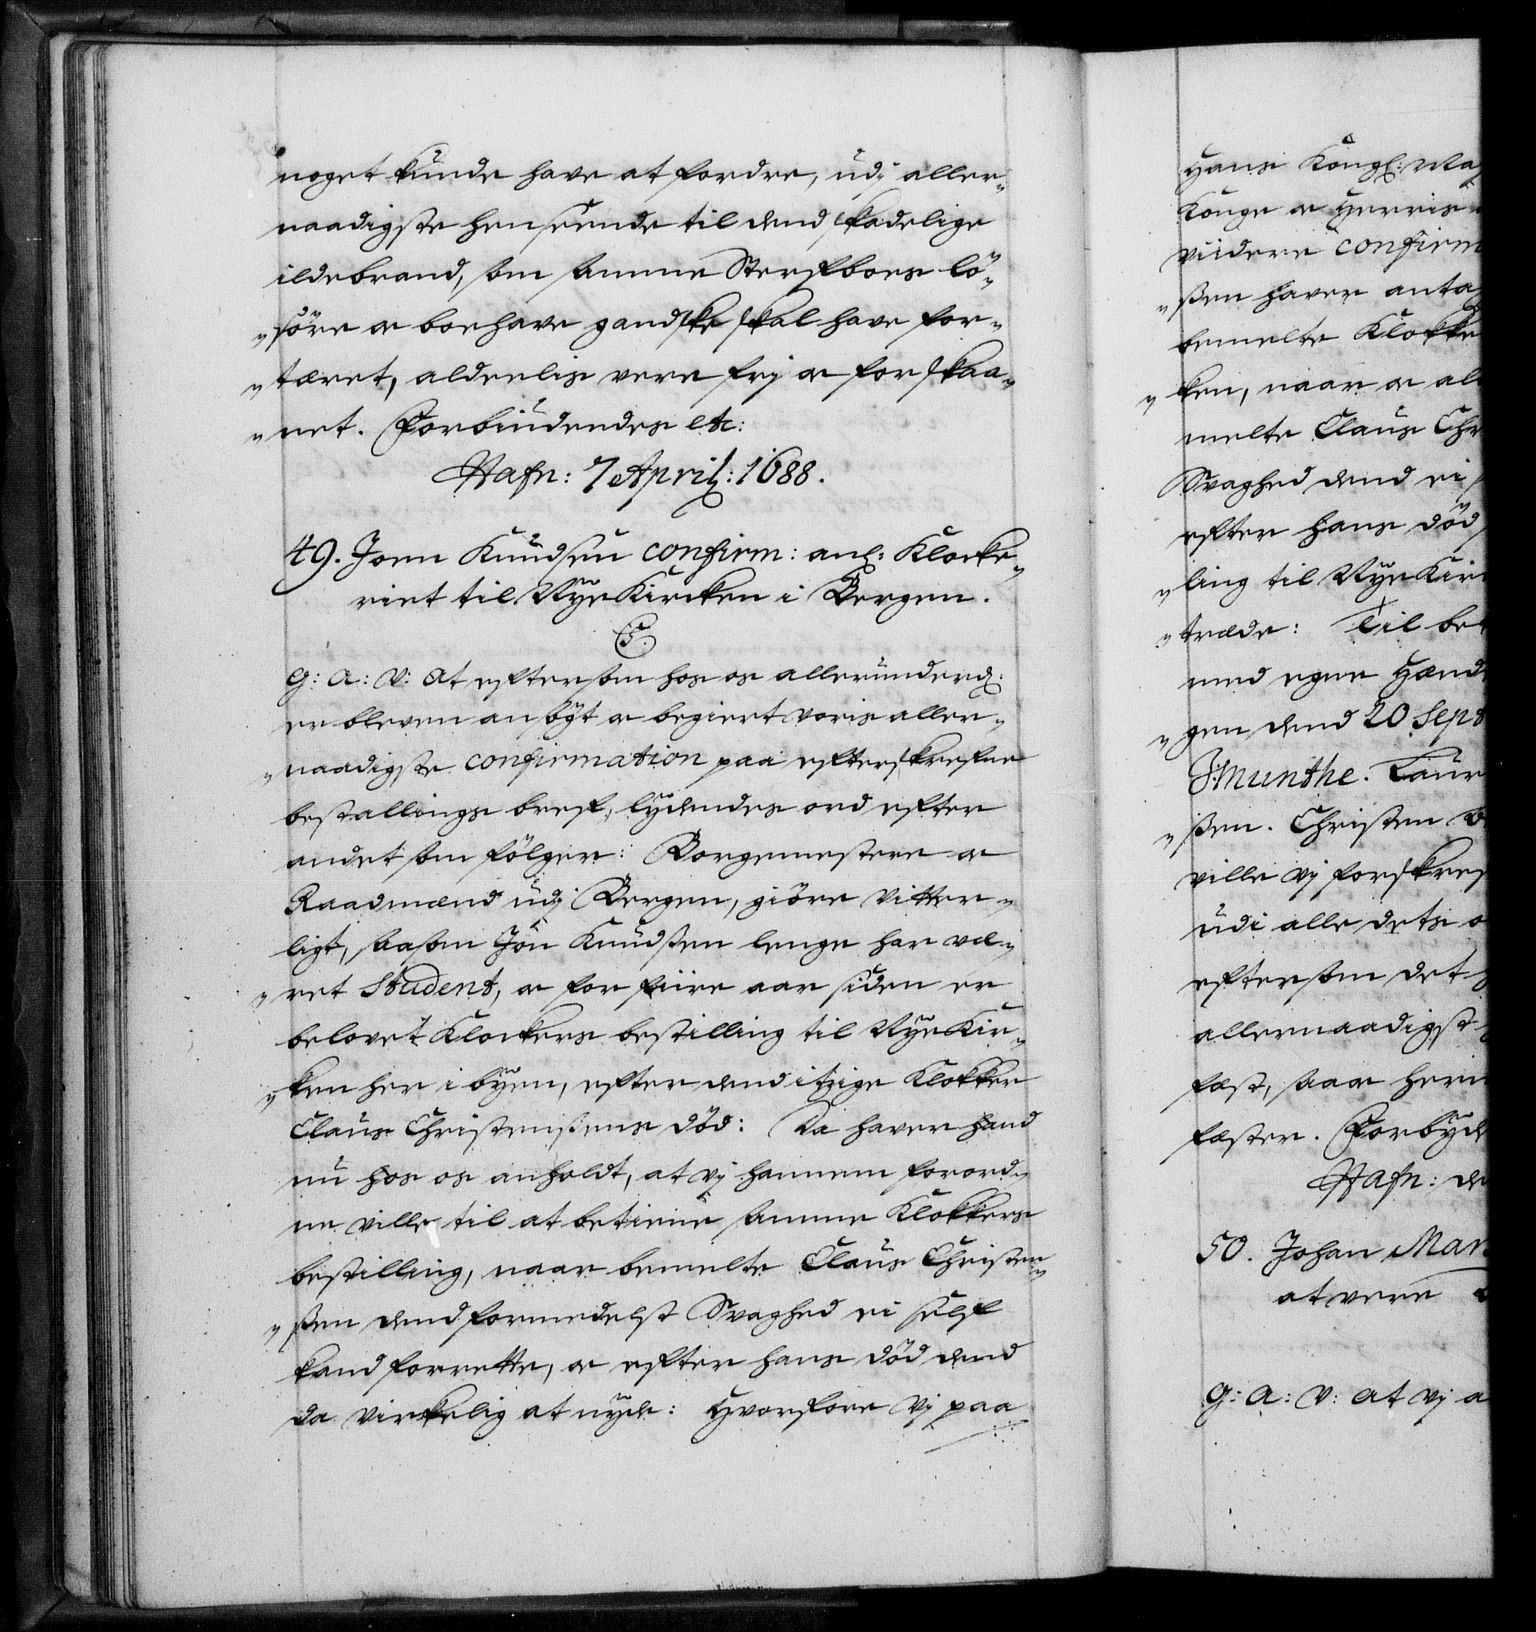 noget kunde have at fordre, udj aller„
naadigste henseende til dend skadelige
ildebrand, som samme Sterfboes lö„
„söre oc boehave gandske skal have for„
„tæret, aldeelis vere frj oc forskaa„
„net. Forbiudendes etc:
Hafn: 7 April: 1688.
49. Joen Knudsen confirm: anl: Klocke„
riet til Nye Kircken i Bergen.
C5.
G: A: V: at eftersom hos os allerunderd:
er bleven ansögt oc begiert voris aller„
„naadigste confirmation paa efterskrefne
bestallings bref, lydendes ord efter
andet som fölger: Borgemestere oc
Raadmænd udj Bergen, giöre vitter„
ligt, saasom Jon Knudsen lenge har væ„
„ret Student, oc for fiire aar siden er
belovet Klockers bestilling til Nye Kir„
„ken her i byen, efter dend itzige Klokker
Claus Christensens död: Da haver hand
nu hos os anholdt, at vj hannem forord„
ne ville til at betiene samme Klokkers
bestilling, naar bemelte Claus Christen„
„sen dend formedelst Svaghed ei self
kand forrette, oc efter hans död dend
da virkelig at nyde: Hvorfore vj paa
Hans Kongl: Ma
Konge oc Herris
viidere confirm
„sen haver anta
bemelte Klokke
„ken, naar oc al
melte Claus Chr
Svaghed dend ei
efter hans död
„ling til Nye Kir
„træde: Til be
med egne Hænd
„gen dend 20 Sept
Munthe. Laur
„sen. Christen
ville vj forskref
udi alle dets o
eftersom det
allernaadigst
fæst, saa oc her
fæster. Forbyd
Hafn: de
50. Johan Mar
at vere
G: A: V: at vj a